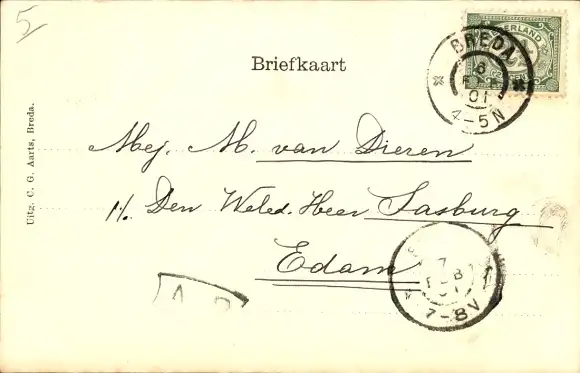 5
NEDERLAND
BREDA
6
FEB
01
4-5N
Briefkaart
Uitg. C. G. Aarts, Breda.
Mej. M. van Dieren
H. Den Weled. Heer Sasburg
Edam
7
FEB
01
7-8V